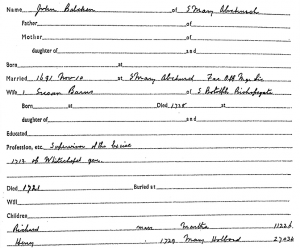 Name John Balchen of S Mary Abchurch
Father of
Mother of
daughter of and
Born at
Married 1691 Nov 10 at S Mary Abchurch Fac Off Mge Lic
Wife 1 Susan Beane of S Botolph Bishopsgate
Born at Died 1728 at
daughter of and
Educated
Profession, etc. Supervisor of the Excise
1713 of Whitechapel gen.
Died 1721 Buried at
Will
Children
Richard marr Martha
Henry 1729 Mary Holbord